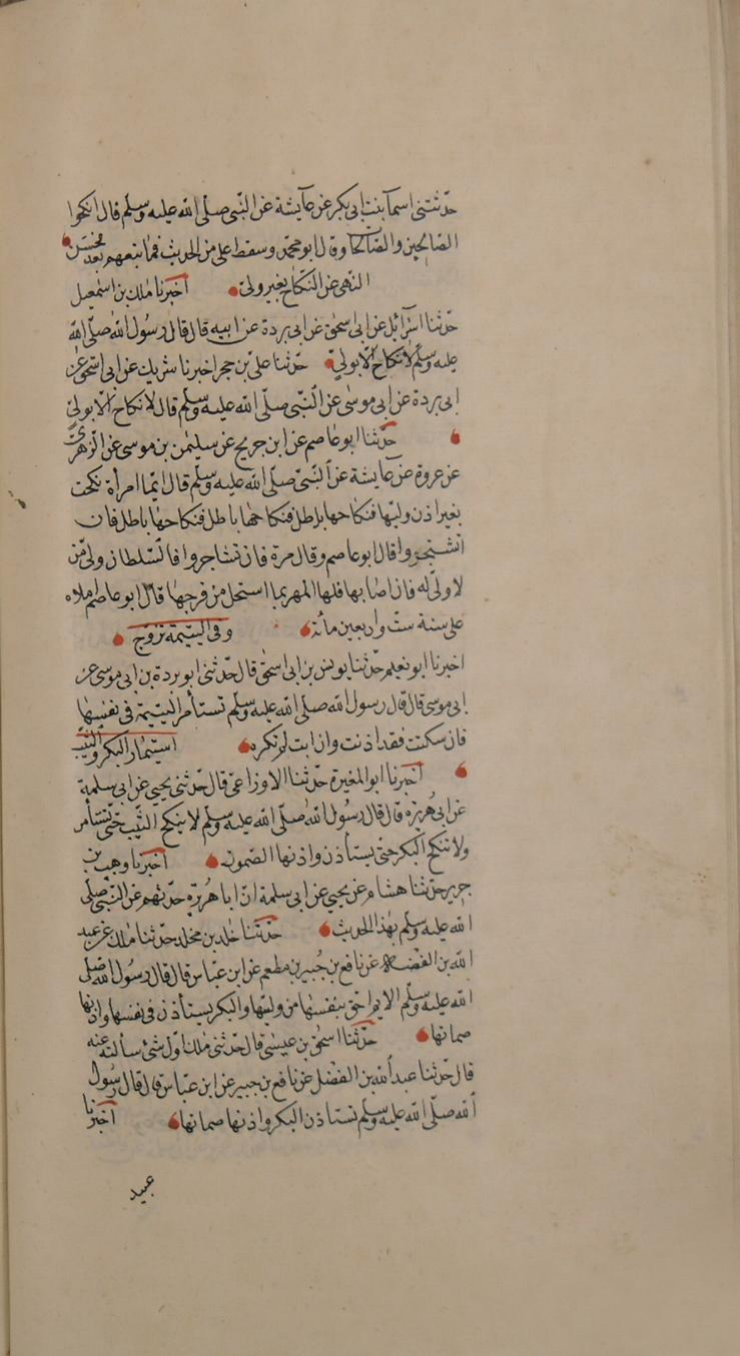 حدثتنى اسمآ بنت ابى بكر عن عآيشة عن النّبى صلّى الله عليه وسلّم قال انكحوا
الصّالحين والصّالحات وقال ابو محمّد وسقط على من الحديث فما تبعهم بعد فحسن
النّهى عن النكاح بغير ولىّ اخبرنا ملك بن اسمعيل
حدّثنا اسرآئيل عن ابى اسحق عن ابى بردة عن ابيه قال قال رسول الله صلّى الله
عليه وسلّم لا نكاح الّا بولىّ حدّثنا على بن حجر اخبرنا شريك عن ابى اسحق عن
ابى بردة عن ابى موسى عن النّبى صلّى الله عليه وسلّم قال لا نكاح الّا بولىّ
حدّثنا ابو عاصم عن ابن جريح عن سليمن بن موسى عن الزهرىّ
عن عروة عن عآيشة عن النّبىّ صلّى الله عليه وسلّم قال ايّما امرأة نكحت
بغير اذن وليّها فنكاحها باطل فنكاحها باطل فنكاحها باطل فان
اشتجروا قال ابو عاصم وقال مرة فان تشاجروا فالسّلطان ولىّ من
لا ولىّ له فان اصابها فلها المهر بما استحل من فرجها قال ابو عاصم املاه
على سنة ستّ واربعين مائة وفى اليتيمة تزوج
اخبرنا ابو نعيم حدّثنا يونس بن ابى اسحق قال حدّثنى ابو بردة بن ابى موسى عن
ابى موسى قال قال رسول الله صلى الله عليه وسلّم تستأمر اليتيمة فى نفسها
فان سكتت فقد اذنت وان ابت لم تكره استيمار البكر والثيّب
اخبرنا ابو المغيرة حدّثنا الاوزاعىّ قال حدّثنى يحيى عن ابى سلمة
عن ابى هريرة قال قال رسول الله صلّى الله عليه وسلّم لا ينكح الثّيب حتّى تستأمر
ولا تنكح البكر حتى يستأذن واذنها الصّموت اخبرنا وهب بن
جرير حدّثنا هشام عن يحيى عن ابى سلمة انّ ابا هريرة حدّثهم عن النّبى صلّى
الله عليه وسلّم بهذا الحديث حدّثنا خلد بن مخلد حدّثنا ملك عن عبد
الله بن الفضل عن نافع بن جبير بن مطعم عن ابن عبّاس قال قال رسول الله صلى
الله عليه وسلّم الايم احق بنفسها من وليّها والبكر يستأذن فى نفسها واذنها
صماتها حدّثنا اسحق بن عيسى قال حدّثنى ملك اوّل شئ سألته عنه
قال حدّثنا عبد الله بن الفضل عن نافع بن جبير عن ابن عبّاس قال قال رسول
الله صلّى الله عليه وسلّم تستاذن البكر واذنها صماتها اخبرنا
عبيد